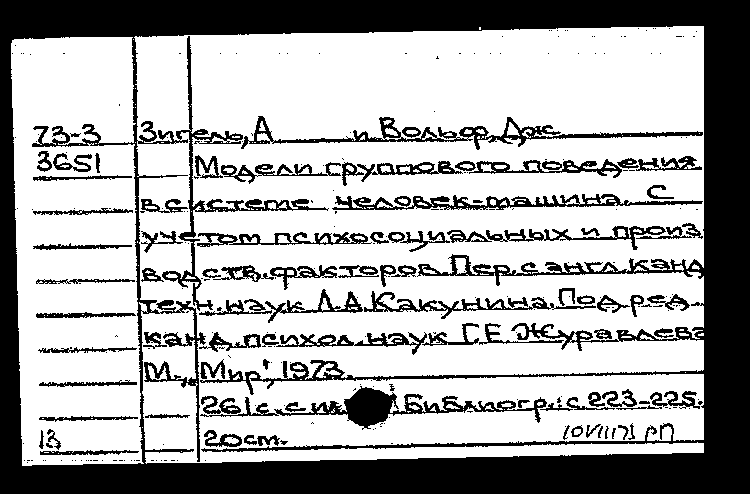 73-3 Зигель, А и Вольф, Дж
3651 Модели группового поведения
в системе человек-машина. С
учетом психосоциальных и произ
водств. факторов. Пер. с англ. канд
техн. наук Л.А. Какунина. Под ред.
канд. психол. наук Г.Е. Журавлева
М., "Мир", 1973.
261 с. с ил Библиогр.: с. 223-225.
13 20 см.